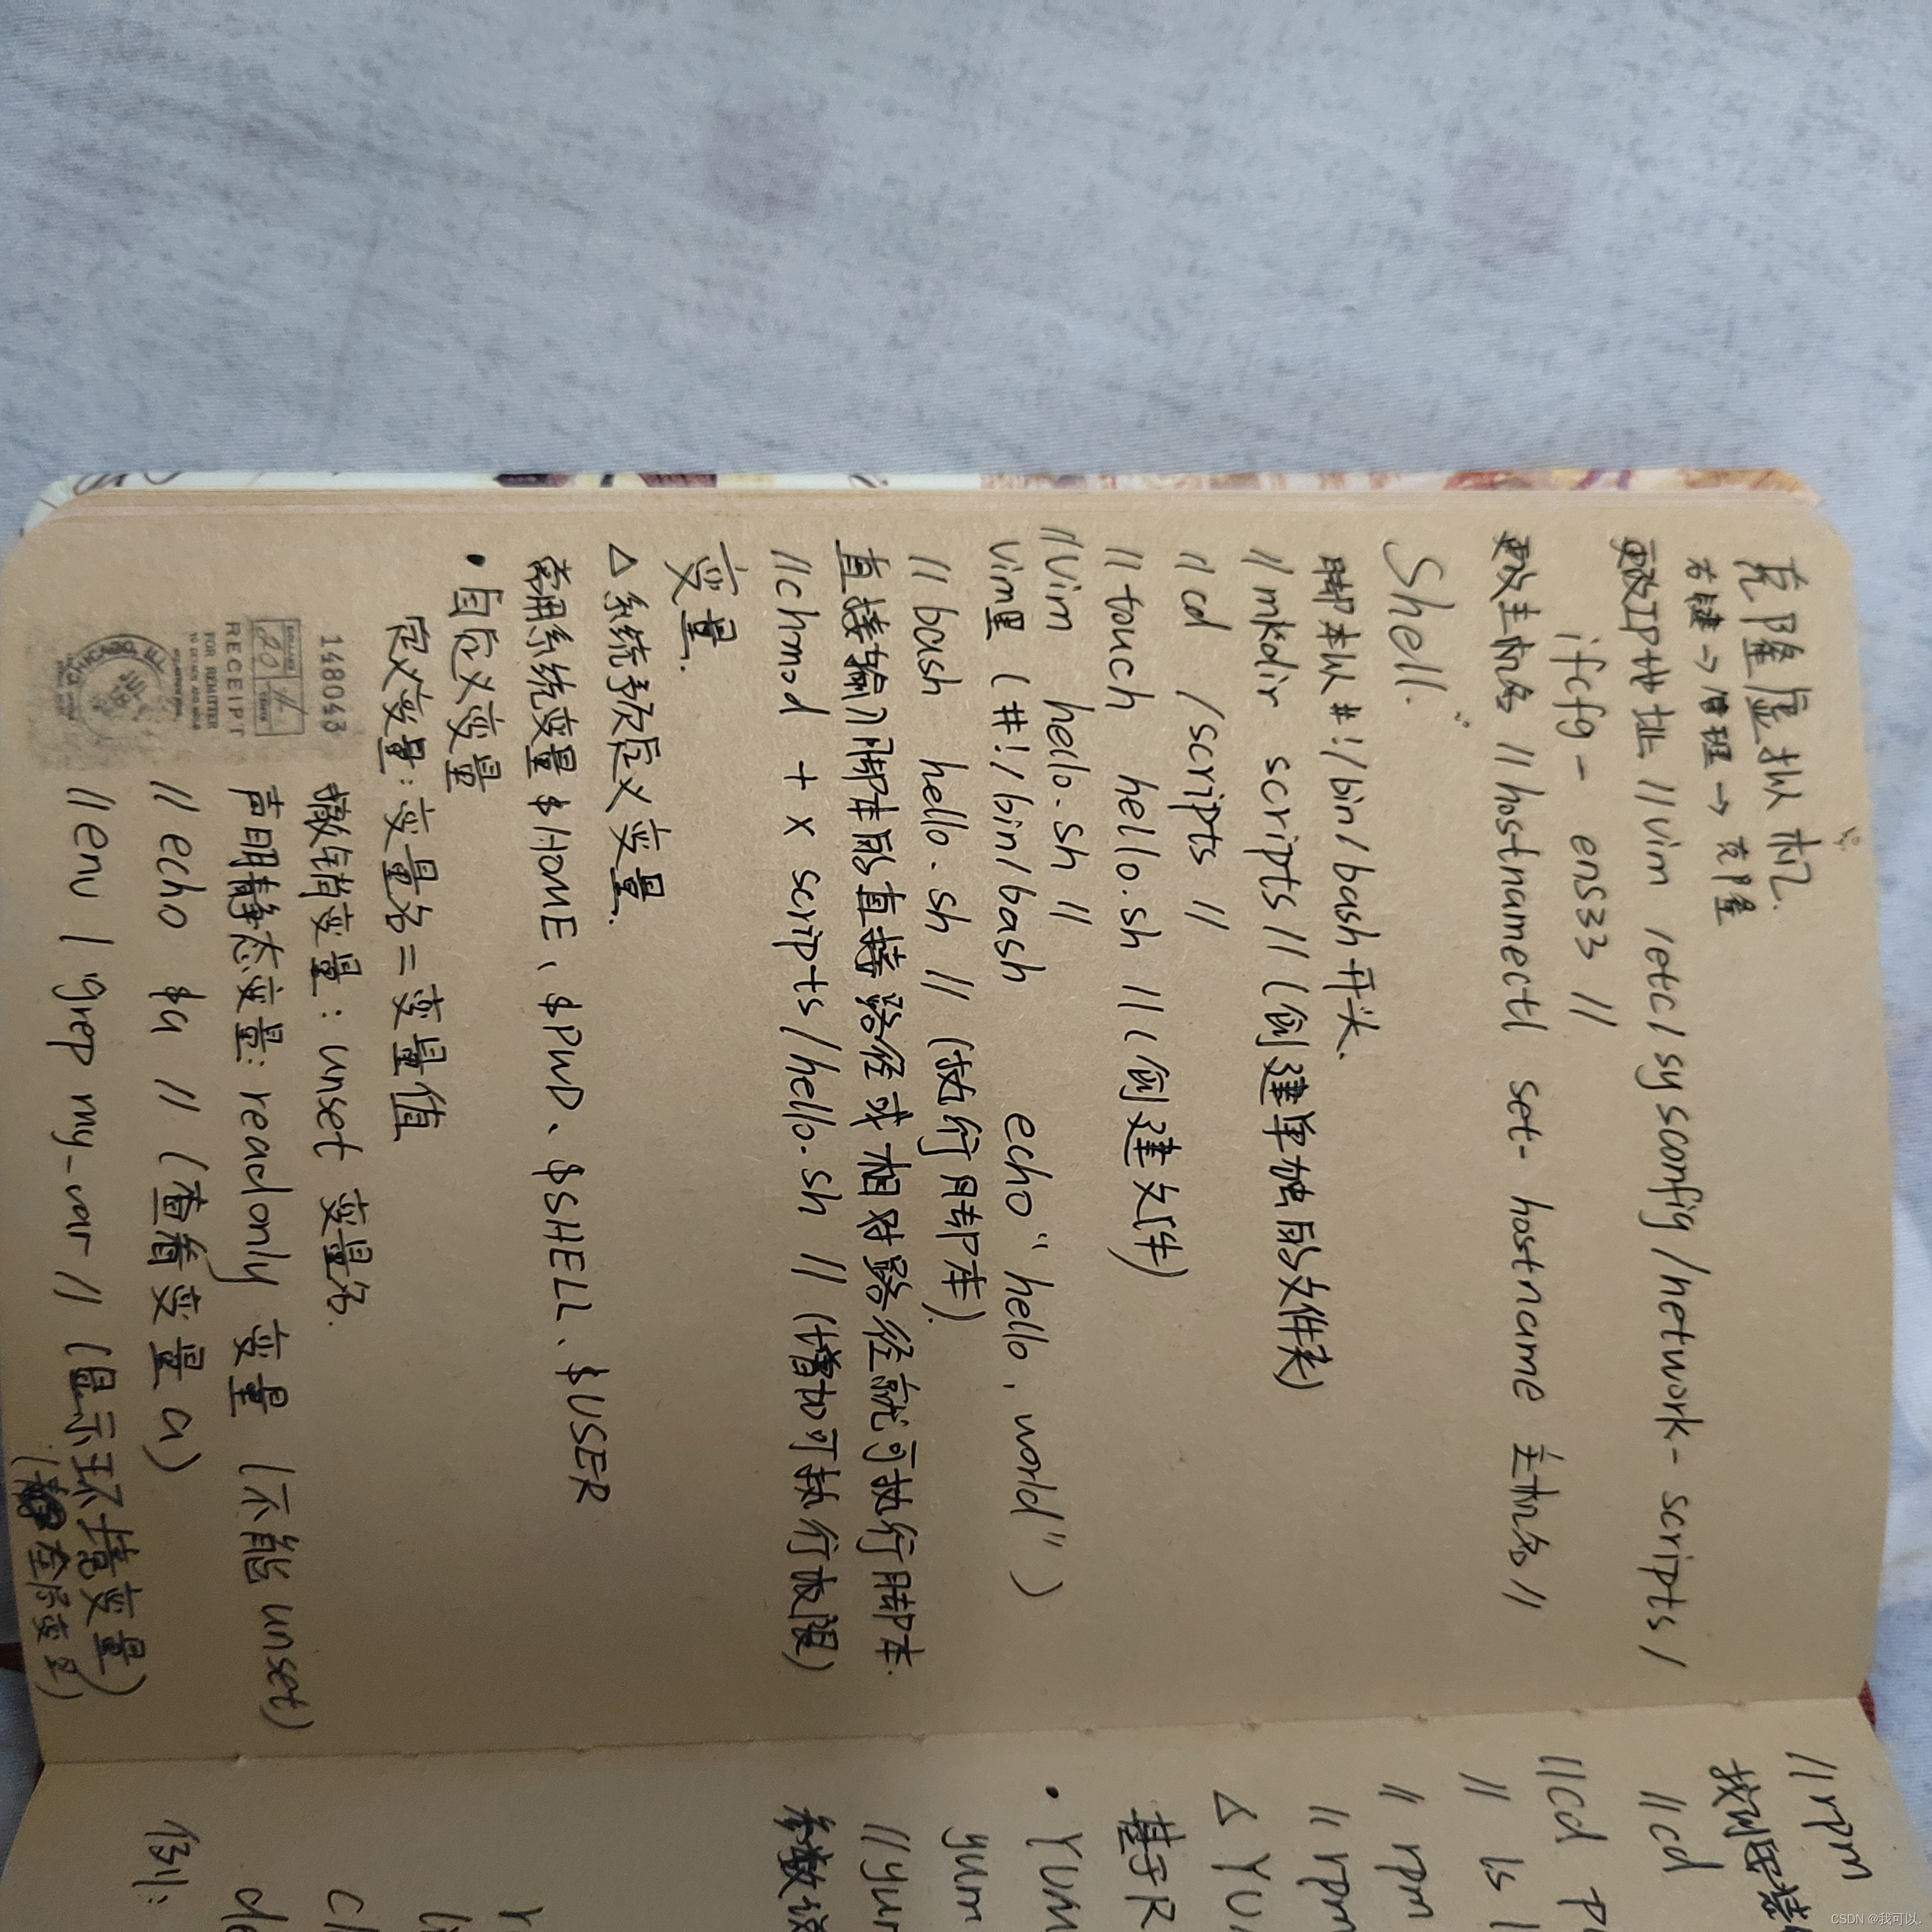 克隆虚拟机.
右键→管理→克隆
更改IP地址 //vim /etc/sysconfig/network-scripts/
ifcfg-ens33 //
更改主机名 //hostnamectl set-hostname 主机名//
Shell.
脚本以#!/bin/bash开头.
//mkdir scripts //(创建单独的文件夹)
//cd /scripts //
//touch hello.sh //(创建文件)
//vim hello.sh //
vim里 (#!/bin/bash echo "hello, world")
//bash hello.sh // (执行脚本).
直接输入脚本的直接路径或相对路径就可执行脚本.
//chmod +x scripts/hello.sh // (增加可执行权限)
变量.
△系统预定义变量.
常用系统变量 $HOME、$PWD、$SHELL、$USER
•自定义变量
定义变量:变量名=变量值
撤销变量: unset 变量名.
声明静态变量: readonly 变量 (不能unset)
//echo $a // (查看变量a)
//env | grep my_var // (显示环境变量)
(全局变量)
148043
RECEIPT
FOR REMITTER
CHICAGO, ILL
//rpm
//cd
//cd
// ls
// rpm
// rpm
△ YU
基于R
• YUM
yum
//yum
参数
例:
CSDN @我可以